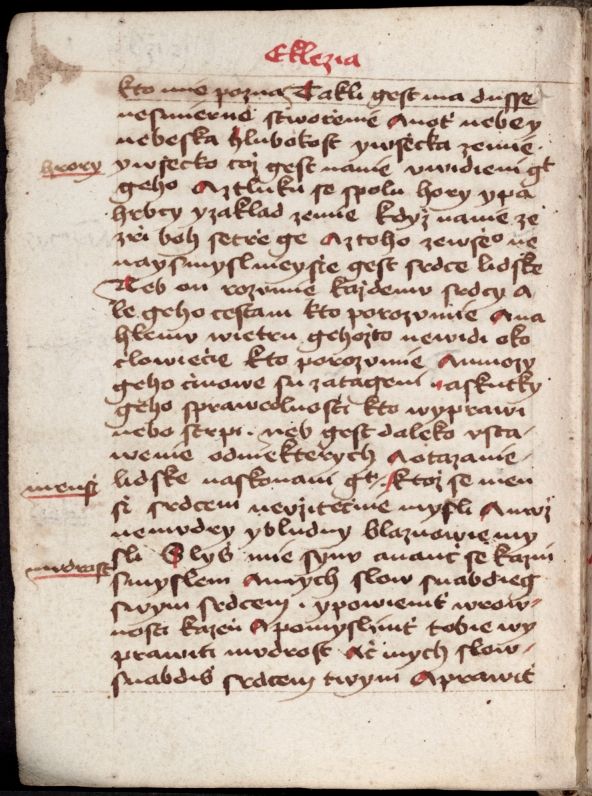 Eklezia
kto mie pozna Takli gest ma dusse
nesmierné stworenié A not nebe y
nebeska hlubokost ywsecka zemie.
hrory
ywsecko coz gest namie uwidieni gt
geho A ztluku se spolu hory ypa
hrbcy yzaklad zemie kdyz namie ze
zri boh setre ge A ztoho zewseo ne
naysmyslmeysie gest srdce lidske
Neb on rozumie kazdemu srdcy a
le geho cestam kto porozumie A na
hlemu wietru gehozto newidi oko
clowiecie kto porozumie A mnozy
geho cinowe su zatageni a skutky
geho sprawedlnosti kto wyprawi
nebo strpi. neb gest daleko usta-
wenie odniekterych A otazanie
mensi
lidske naskonani gt. Ktoz se men
si srdcem neuzitecnie mysli A muz
nemudry ybludny blaznowie my
mudrost
sli Slys mie synu anauc se kazni
smyslem A mych slow snabdieg
swym srdcem. ypowiemt wrow-
nosti kazen A pomyslimt tobie wy
prawiti mudrost A c mych slow
snabdis srdcem twym A prawit